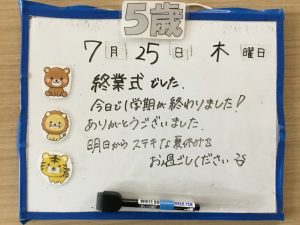 5歳
7月25日 木曜日
終業式でした。
今日で1学期が終わりました!
ありがとうございました
明日からステキな夏休みを
お過ごしください
WHITE BOARD MARKER